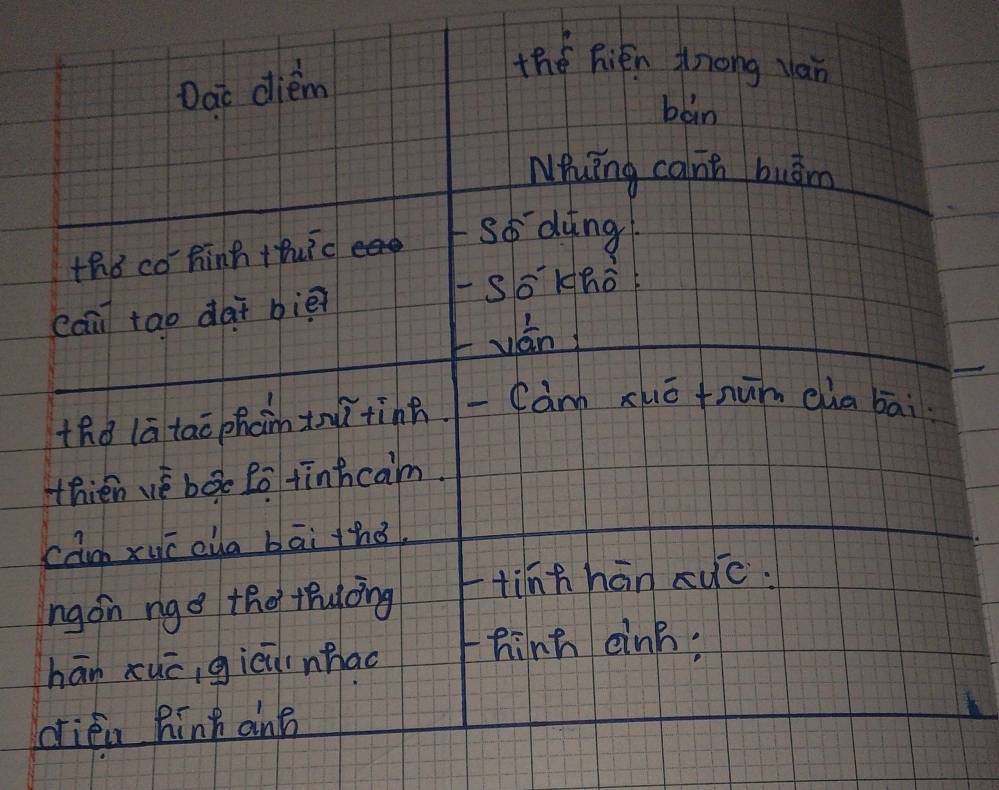 Đặc điểm
thể hiện trong văn
bản
Những cánh buồm
thơ có hình thức cao
cấu tạo đặt biệt
- Số dùng:
- Số khổ:
- vần:
thơ là tác phẩm trữ tình.
thiên về bộc lộ tình cảm.
cảm xúc của bài thơ.
- Cảm xuc trùm của bài:
ngôn ngơ thơ thường
hàn xuc, giàu nhạc
điệu hình ảnh
- tính hàn xưc:
- hình ảnh: